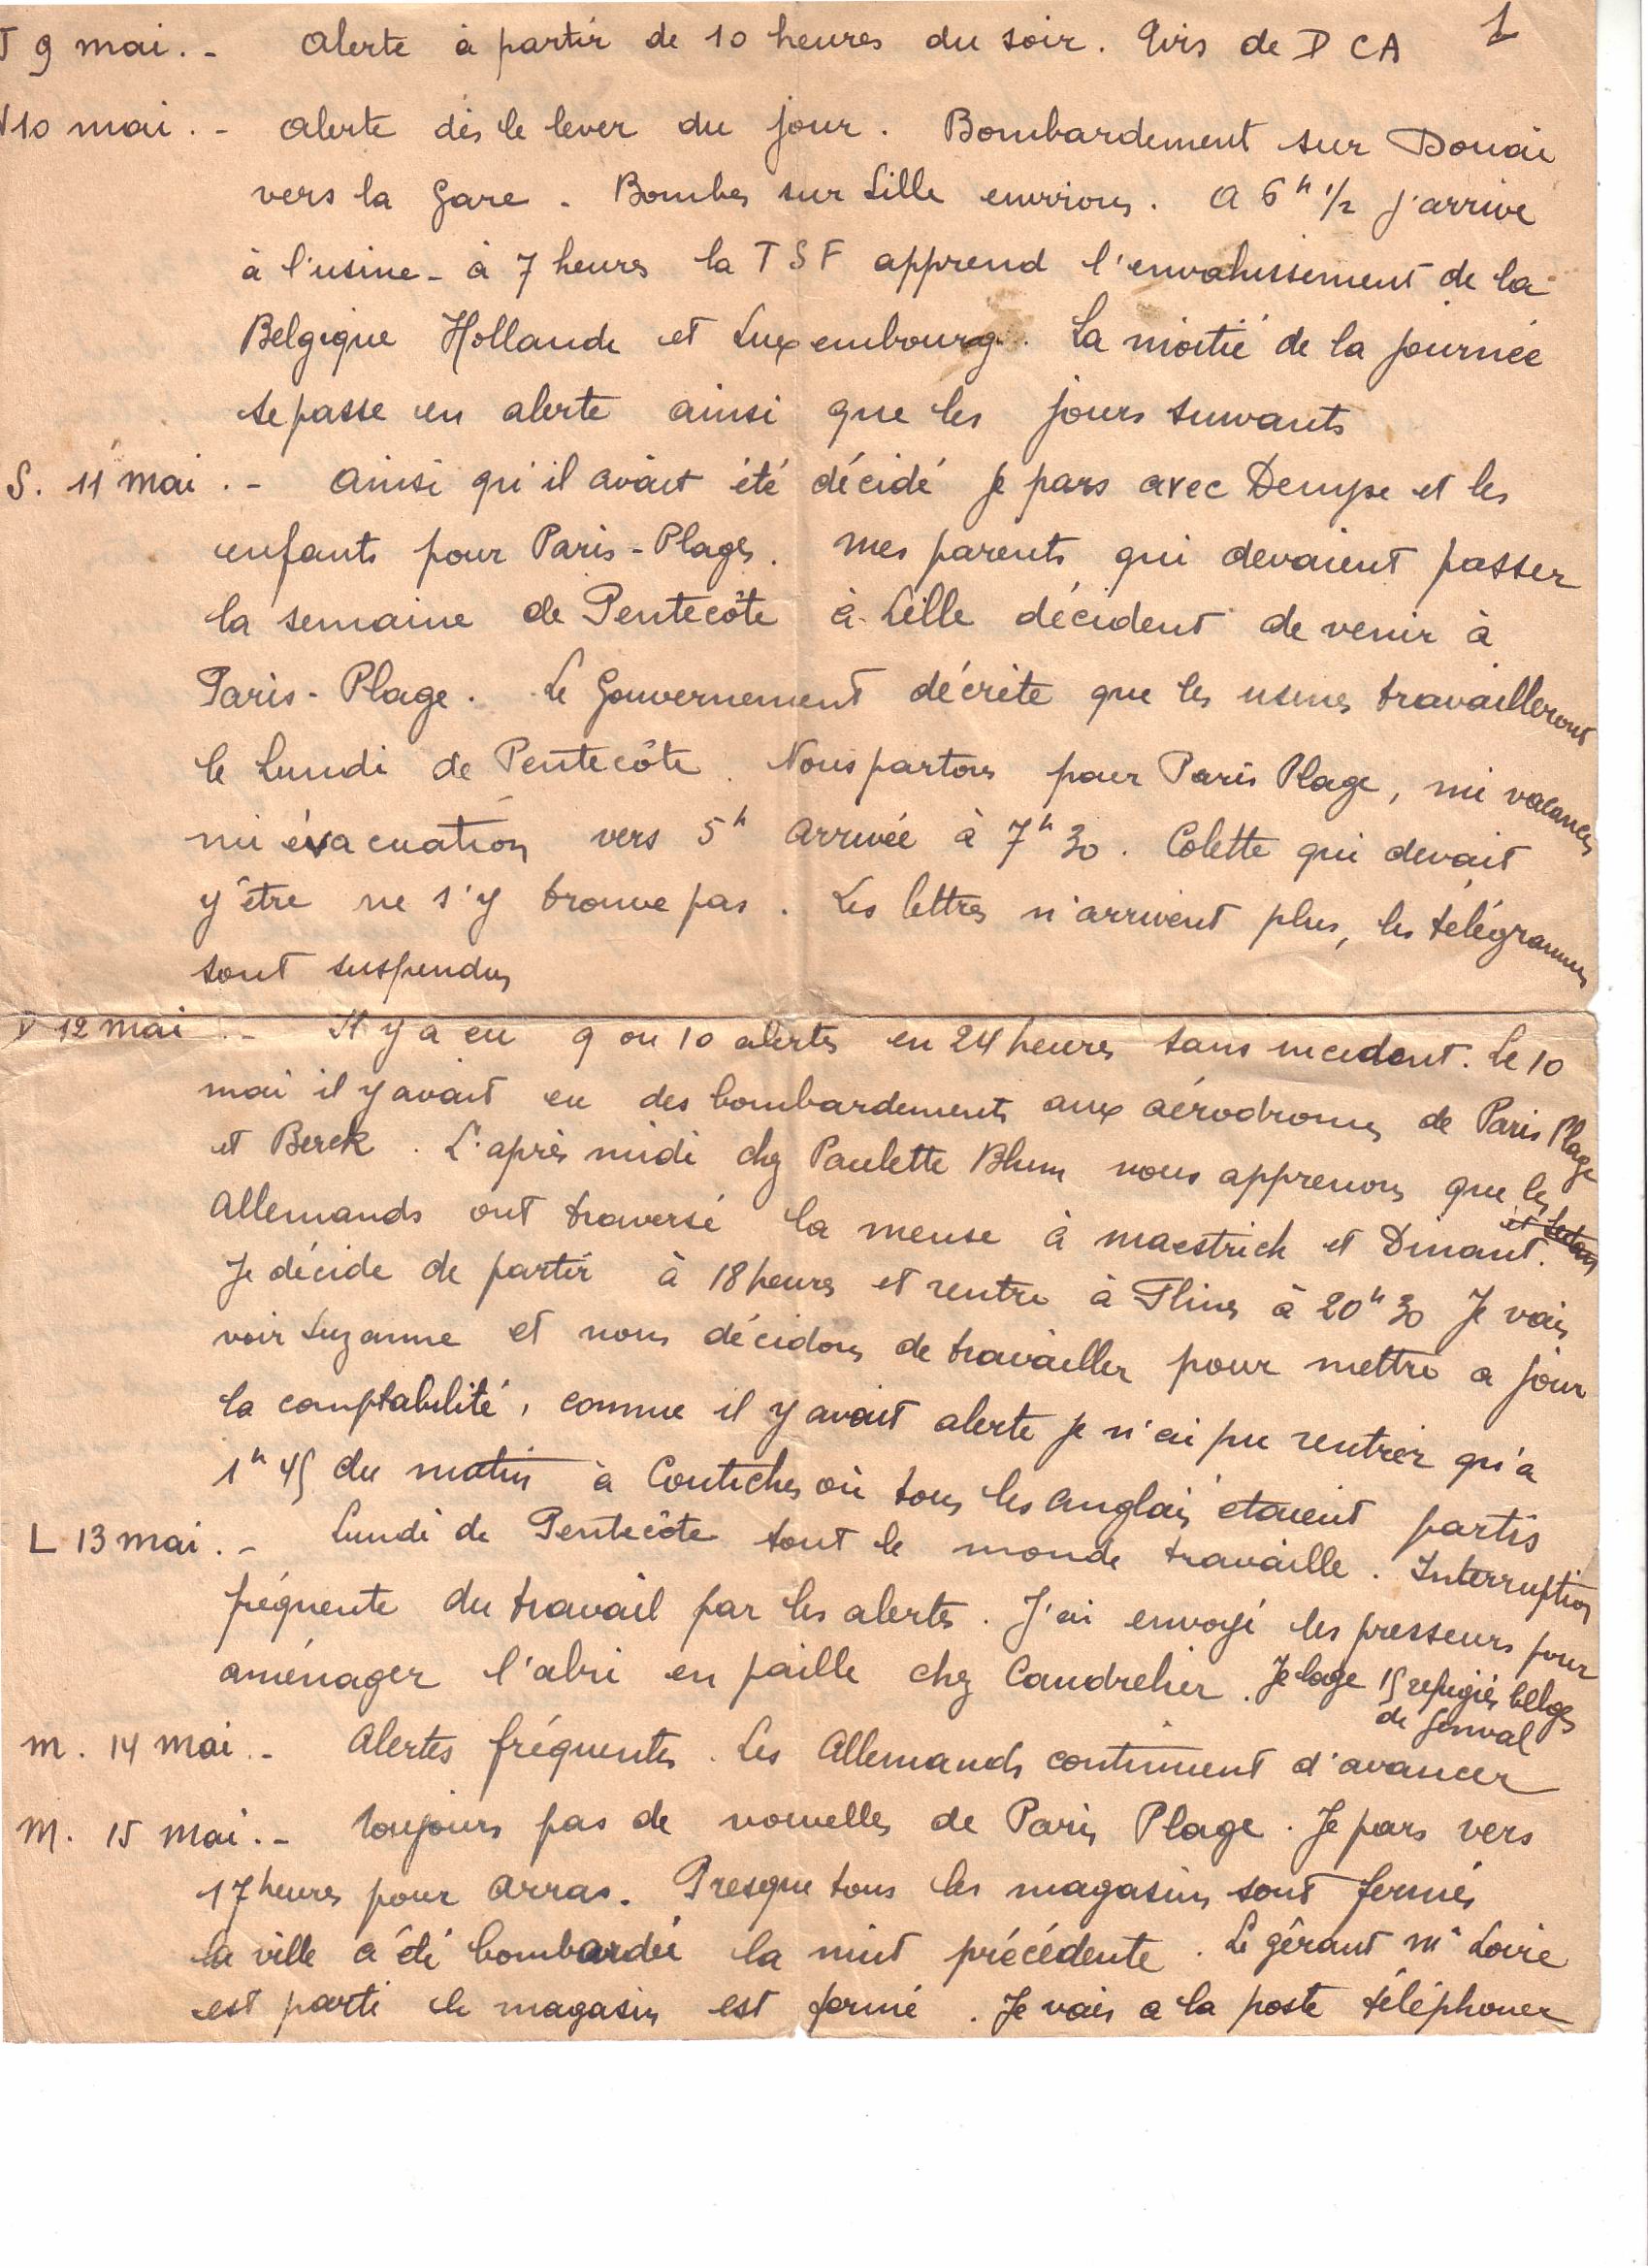 J 9 mai. - Alerte à partir de 10 heures du soir. Tirs de D C A 1
V 10 mai. - Alerte dès le lever du jour. Bombardement sur Douai
vers la gare. Bombes sur Lille environs. A 6h 1/2 j'arrive
à l'usine - à 7 heures la T S F apprend l'envahissement de la
Belgique Hollande et Luxembourg. La moitié de la journée
se passe en alerte ainsi que les jours suivants
S. 11 mai. - Ainsi qu'il avait été décidé je pars avec Denyse et les
enfants pour Paris-Plage. Mes parents qui devaient passer
la semaine de Pentecôte à Lille décident de venir à
Paris-Plage. Le Gouvernement décrète que les usines travailleront
le Lundi de Pentecôte. Nous partons pour Paris Plage, mi vacances
mi évacuation vers 5h arrivée à 7h 30. Colette qui devait
y être ne s'y trouve pas. Les lettres n'arrivent plus, les télégrammes
sont suspendus
D 12 mai. - Il y a eu 9 ou 10 alertes en 24 heures sans incident. Le 10
mai il y avait eu des bombardements aux aérodromes de Paris Plage
et Berck. L'après midi chez Paulette Blum nous apprenons que les
Allemands ont traversé la meuse à maestrich et Dinant. et Sedan
Je décide de partir à 18 heures et rentre à Flines à 20h 30 Je vais
voir Suzanne et nous décidons de travailler pour mettre a jour
la comptabilité, comme il y avait alerte je n'ai pu rentrer qu'a
1h 45 du matin à Coutiches où tous les anglais etaient partis
L 13 mai. - Lundi de Pentecôte tout le monde travaille. Interruption
fréquente du travail par les alertes. J'ai envoyé les presseurs pour
aménager l'abri en paille chez Caudrelier. Je loge 15 refugiés belges
de Genval
M. 14 mai. - Alertes fréquentes. Les Allemands continuent d'avancer
M. 15 mai. - Toujours pas de nouvelles de Paris Plage. Je pars vers
17 heures pour Arras. Presque tous les magasins sont fermés
la ville a été bombardée la nuit précédente. Le gérant Mr Loire
est parti le magasin est fermé. Je vais a la poste téléphoner